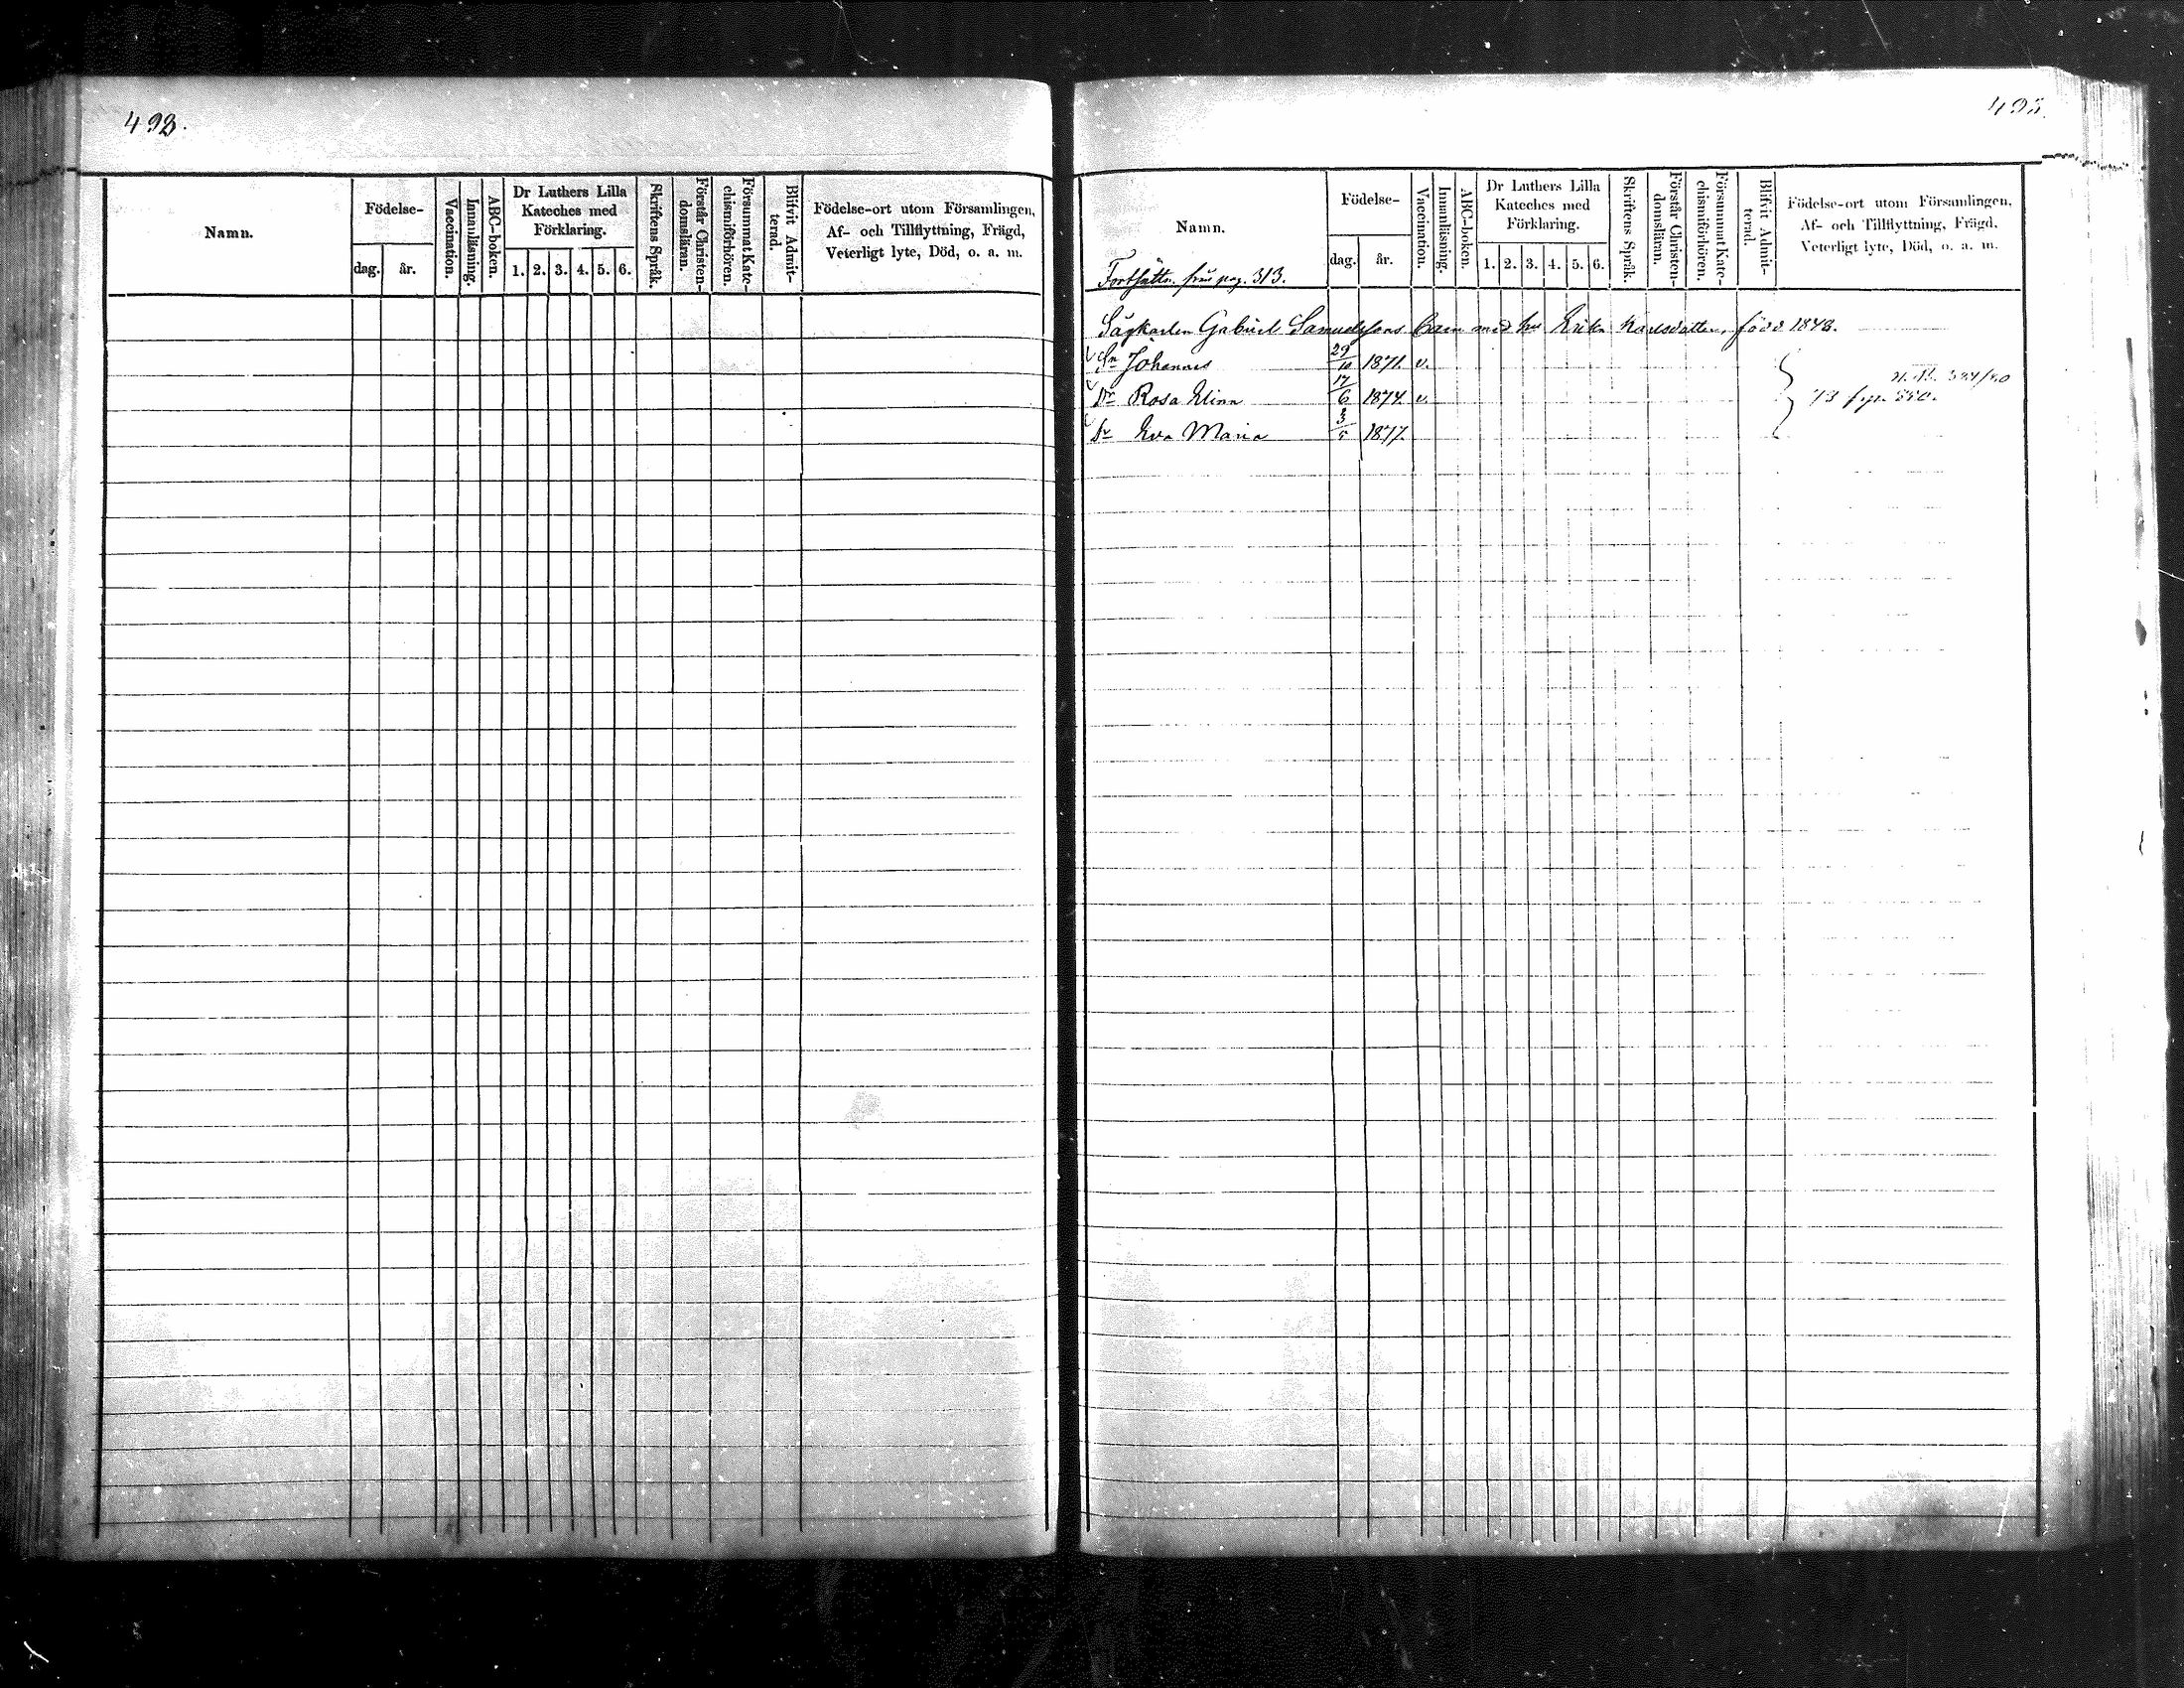 493.
Namn.
Födelse-
dag. år.
Vaccination.
Innanläsning.
ABC-boken.
Dr Luthers Lilla
Kateches med
Förklaring.
1. 2. 3. 4. 5. 6.
Skriftens Språk.
Förstår Christen-
domsläran.
Försummat Kate-
chismiförhören.
Blifvit Admit-
terad.
Födelse-ort utom Församlingen,
Af- och Tillflyttning, Frägd,
Veterligt lyte, Död, o. a. m.
493.
Namn.
Fortsättn. från pag. 313.
Födelse-
dag. år.
Vaccination.
Innanläsning.
ABC-boken.
Dr Luthers Lilla
Kateches med
Förklaring.
1. 2. 3. 4. 5. 6.
Skriftens Språk.
Förstår Christen-
domsläran.
Försummat Kate-
chismiförhören.
Blifvit Admit-
terad.
Födelse-ort utom Församlingen,
Af- och Tillflyttning, Frägd,
Veterligt lyte, Död, o. a. m.
Sågkarlen Gabriel Samuelssons Barn med hu Erika Karlsdotter, född 1848.
Sn Johannes 29/10 1871. v.
Dr Rosa Elina 17/6 1874. v.
Dr Eva Maria 3/5 1877.